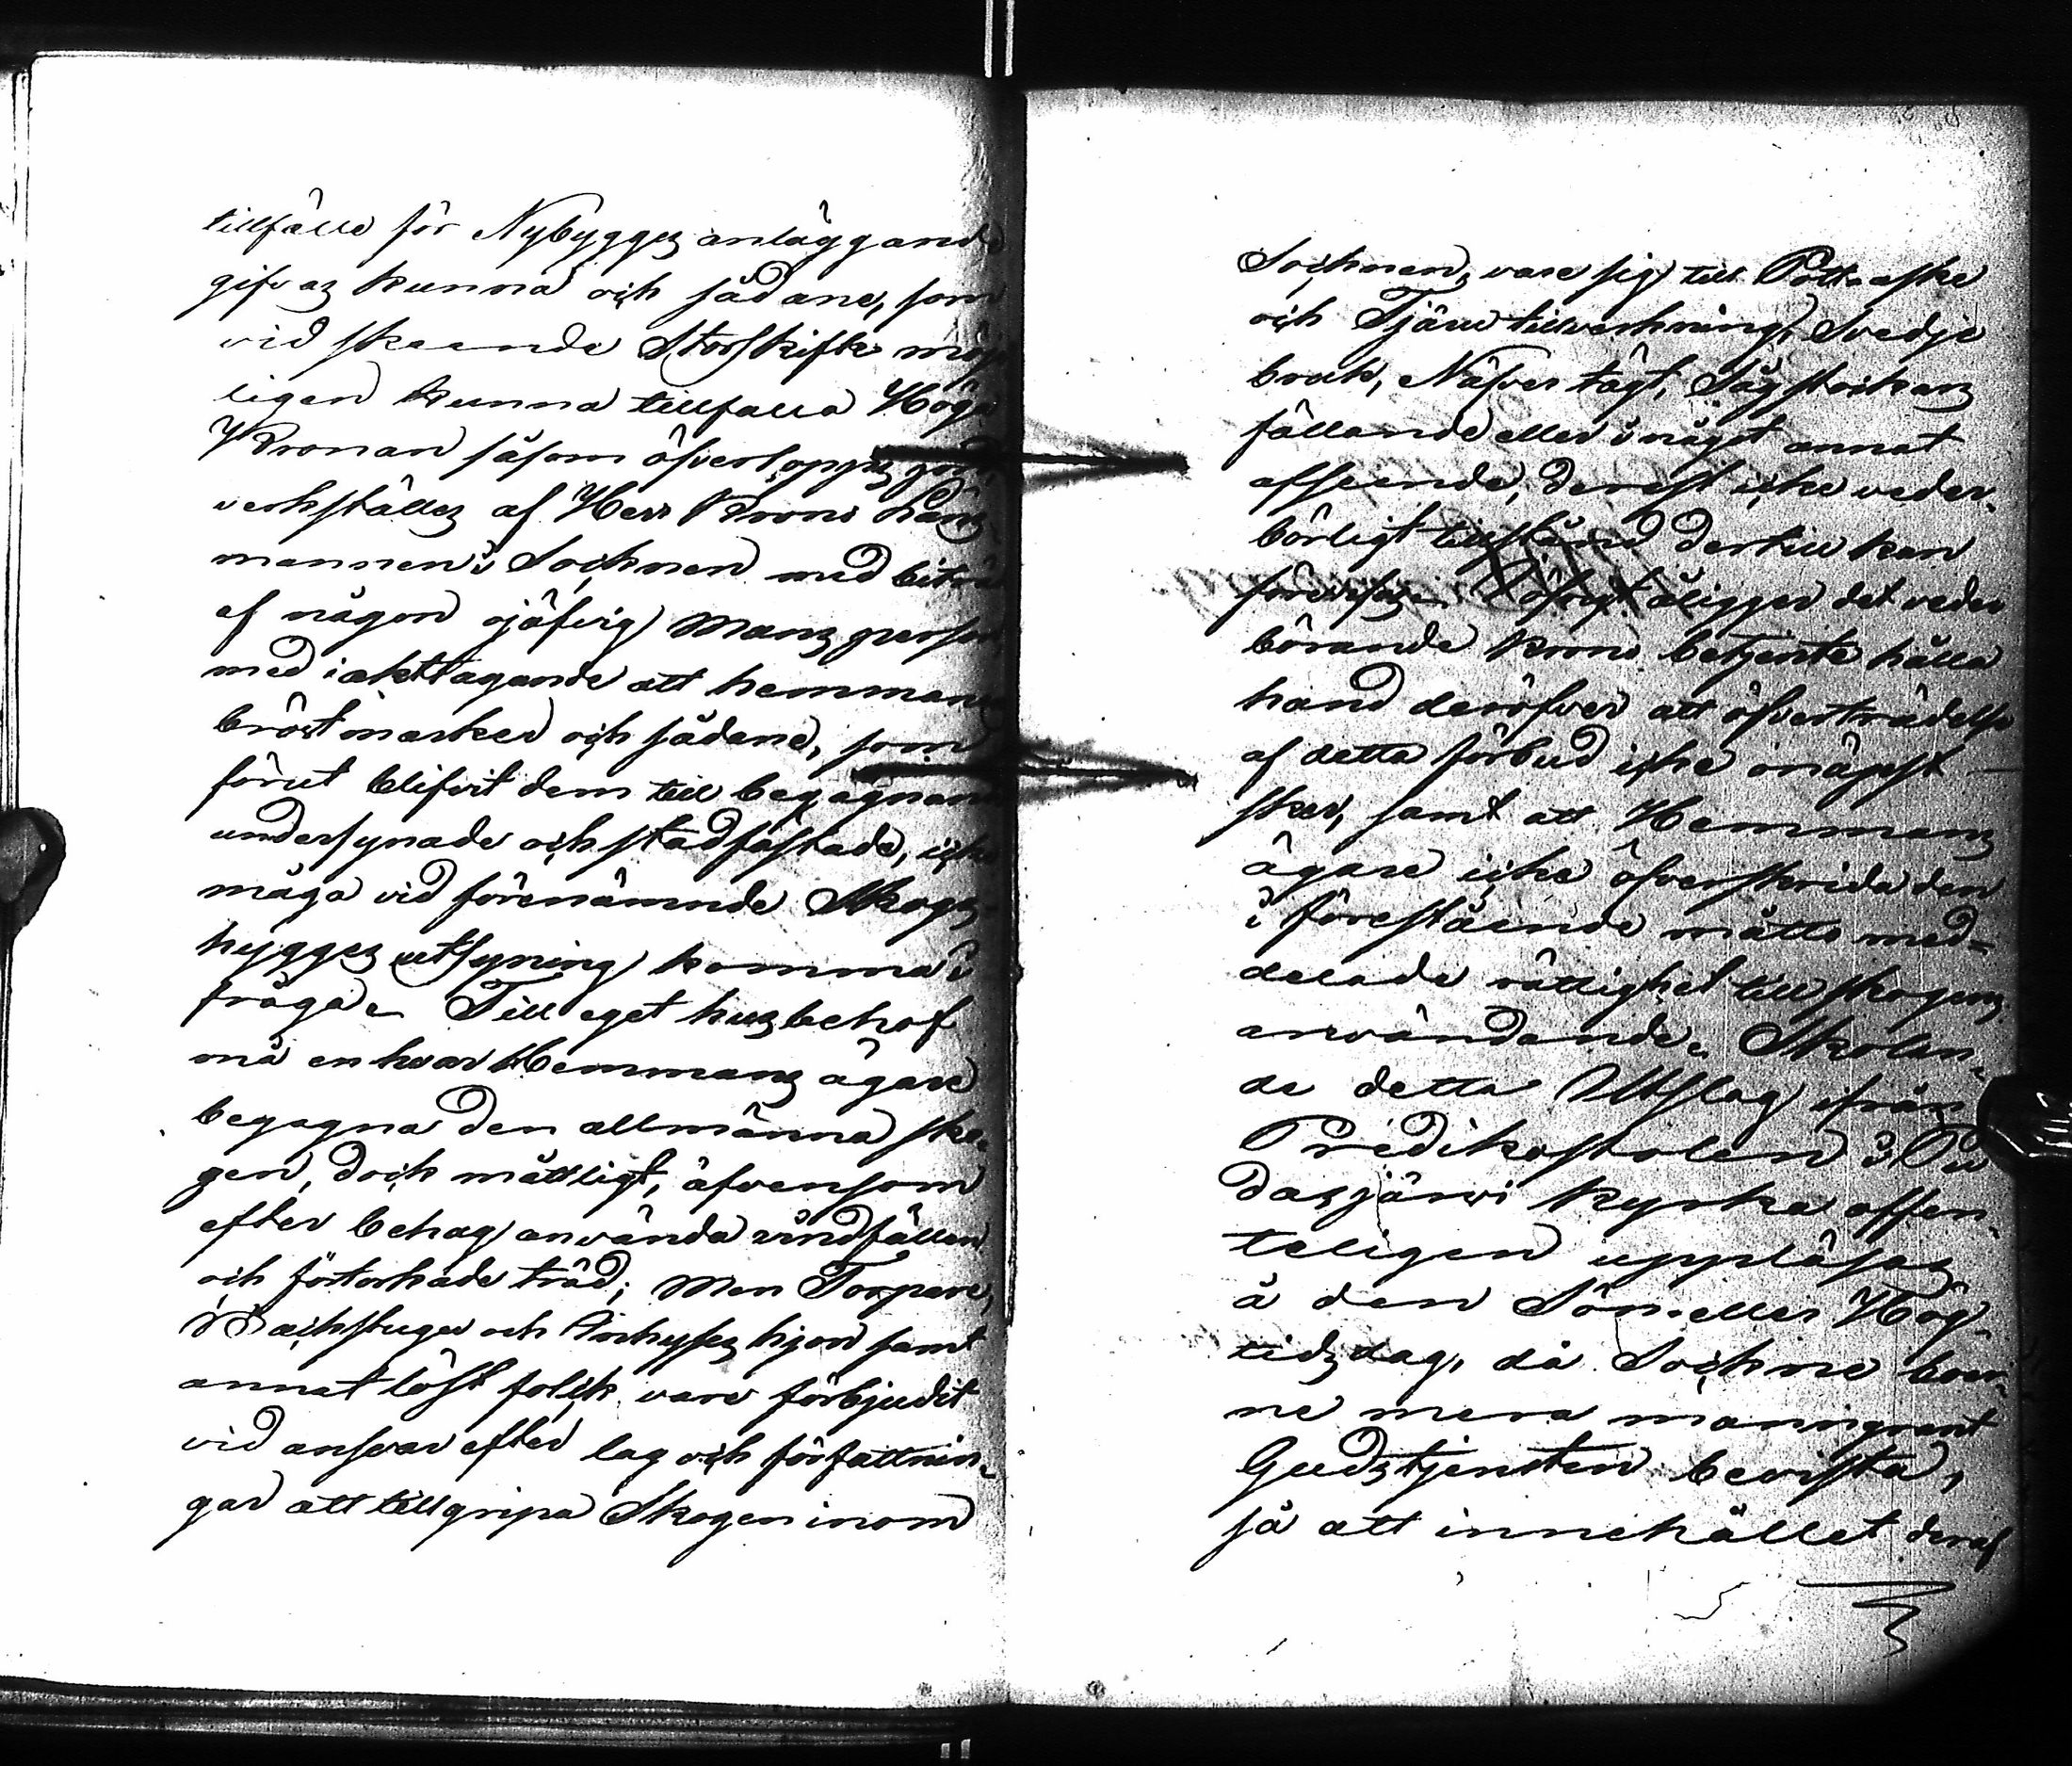 tillfälle för Nybygges anläggande
gifvas kunna och sådane, som
vid skeende Storskifte möj-
ligen kunna tillfalla Höga
Kronan såsom öfverlopps jord,
verkställes af Herr Krono Läns-
mannen i Socknen med biträde
af någon ojäfvig Mans person
med iakttagande att hemmans
bröstmarker och sådane, som
förut blifvit dem till begagnande
undersynade och stadfästade, icke
måga vid förenämnde Skogs
hygges utsyning komma i
fråga. Till eget husbehof
må en hvar Hemmans ägare
begagna den allmänna sko-
gen, dock måttligt, äfvensom
efter behag använda vindfällen
och förtorkade träd; men Torpare,
Backstugu och Inhyses hjon samt
annat löst folck vare förbjudit
vid ansvar efter lag och författnin-
gar att tillgripa Skogen inom
Socknen, vare sig till Pottaske
och Tjäru tillverkning, Svedje
bruk, Näfver tägt, Sågstockars
fällande eller i något annat
afseende, derest icke veder-
börligt tillstånd dertill kan
företes. I öfrigt åligger det veder
börande Krono betjente hålla
hand deröfver att öfverträdelse
af detta förbud icke onäpst
sker, samt att Hemmans
ägare icke öfverskrida den
i förestående måtto med-
delade rättighet till skogens
användande. Skolan-
de detta Utslag ifrån
Predikostolen i Pu
dasjärvi kyrka offen-
teligen uppläsas
å den Sön- eller Hög-
tidsdag, då Sockne boer-
ne mera manngrant
Gudstjensten bevista,
så att innehållet deraf